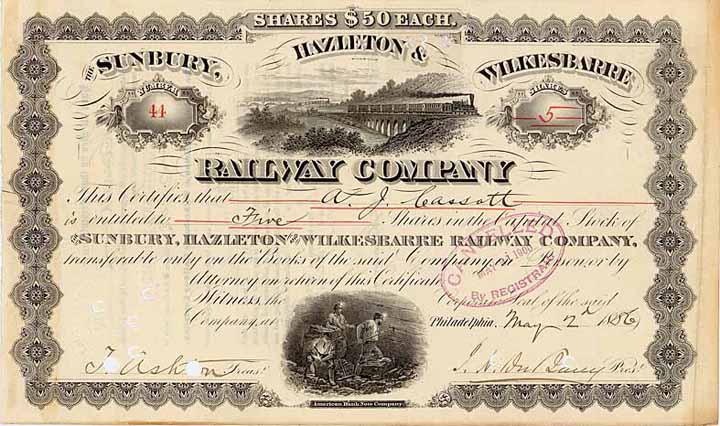 SHARES $50 EACH.
THE SUNBURY, HAZLETON & WILKESBARRE
NUMBER
44
SHARES
5
RAILWAY COMPANY
This Certifies that A. J. Cassatt
is entitled to Five Shares in the Capital Stock of
THE SUNBURY, HAZLETON AND WILKESBARRE RAILWAY COMPANY,
transferable only on the Books of the said Company in Person or by
Attorney on return of this Certificate
Witness, the Corporate Seal of the said
Company, at Philadelphia, May 2d 1886
CANCELLED
MAY
By REGISTRAR
Treasr.
Prest.
American Bank Note Company